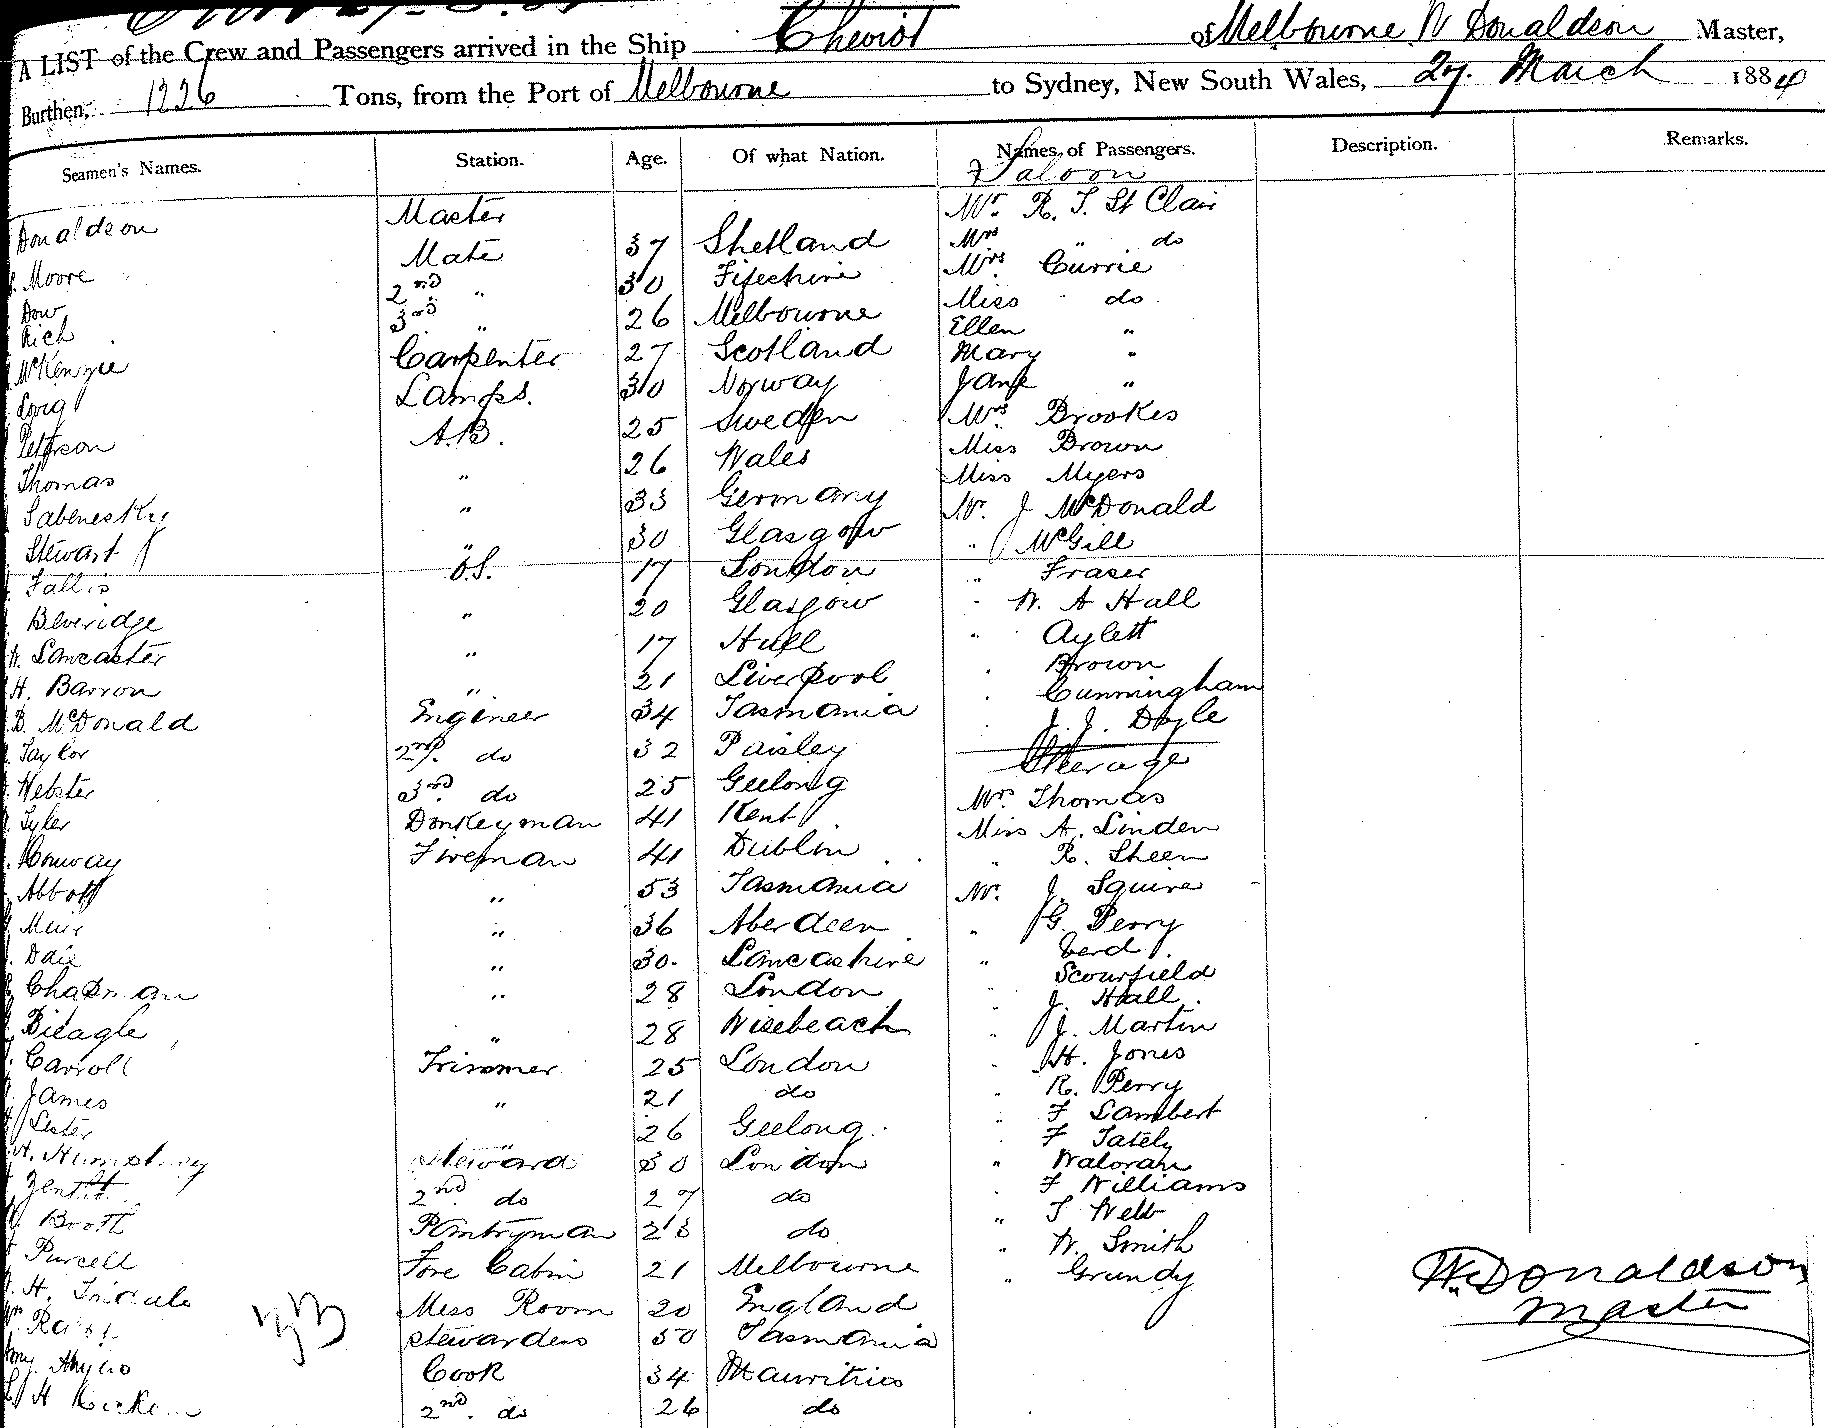 A LIST of the Crew and Passengers arrived in the Ship Cheviot of Melbourne W Donaldson Master,
Burthen, 1226 Tons, from the Port of Melbourne to Sydney, New South Wales, 27. March 1884
Seamen's Names. Station. Age. Of what Nation. Names of Passengers. Description. Remarks.
Donaldson
Moore
Dow
Rich
McKenzie
Peterson
Thomas
Sabenesky
Stewart J
Fallis
Beveridge
Lancaster
H. Barron
D. McDonald
Taylor
Webster
Tyler
Conway
Abbott
Muir
Dale
Chapman
Carroll
James
Lester
Humphrey
Brott
Purcell
Master
Mate
2nd "
3rd "
Carpenter
Lamps.
A.B.
"
"
"
O.S.
"
"
"
Engineer
2nd. do
3rd. do
Donkeyman
Fireman
"
"
"
"
"
Trimmer
"
"
Steward
2nd do
Pantryman
Fore Cabin
Mess Room
Stewardess
Cook
2nd. do
37 Shetland
30 Fifeshire
26 Melbourne
27 Scotland
30 Norway
25 Sweden
26 Wales
33 Germany
30 Glasgow
17 London
20 Glasgow
17 Hull
21 Liverpool
34 Tasmania
32 Paisley
25 Geelong
41 Kent
41 Dublin
53 Tasmania
36 Aberdeen
30. Lancashire
28 London
28 Wisebeach
25 London
21 do
26 Geelong.
30 London
27 do
23 do
21 Melbourne
20 England
50 Tasmania
34 Mauritius
26 do
Saloon
Mr. R. T. St Clair
Mrs " do
Mrs Currie
Miss do
Ellen "
Mary "
Jane "
Mrs Brookes
Miss Brown
Miss Myers
Mr. J McDonald
" McGill
" Fraser
" W. A Hall
" Aylett
" Brown
" Cunningham
" J. J. Doyle
Steerage
Mrs Thomas
Miss A. Linden
" R. Sheen
Mr. J. Squire
" G. Perry
" Verd
" Scourfield
" J. Hall
" J. Martin
" H. Jones
" R. Perry
" F Lambert
" F Tately
" Waloran
" F Williams
" T Webb
" W. Smith
" Grundy
W. Donaldson
Master